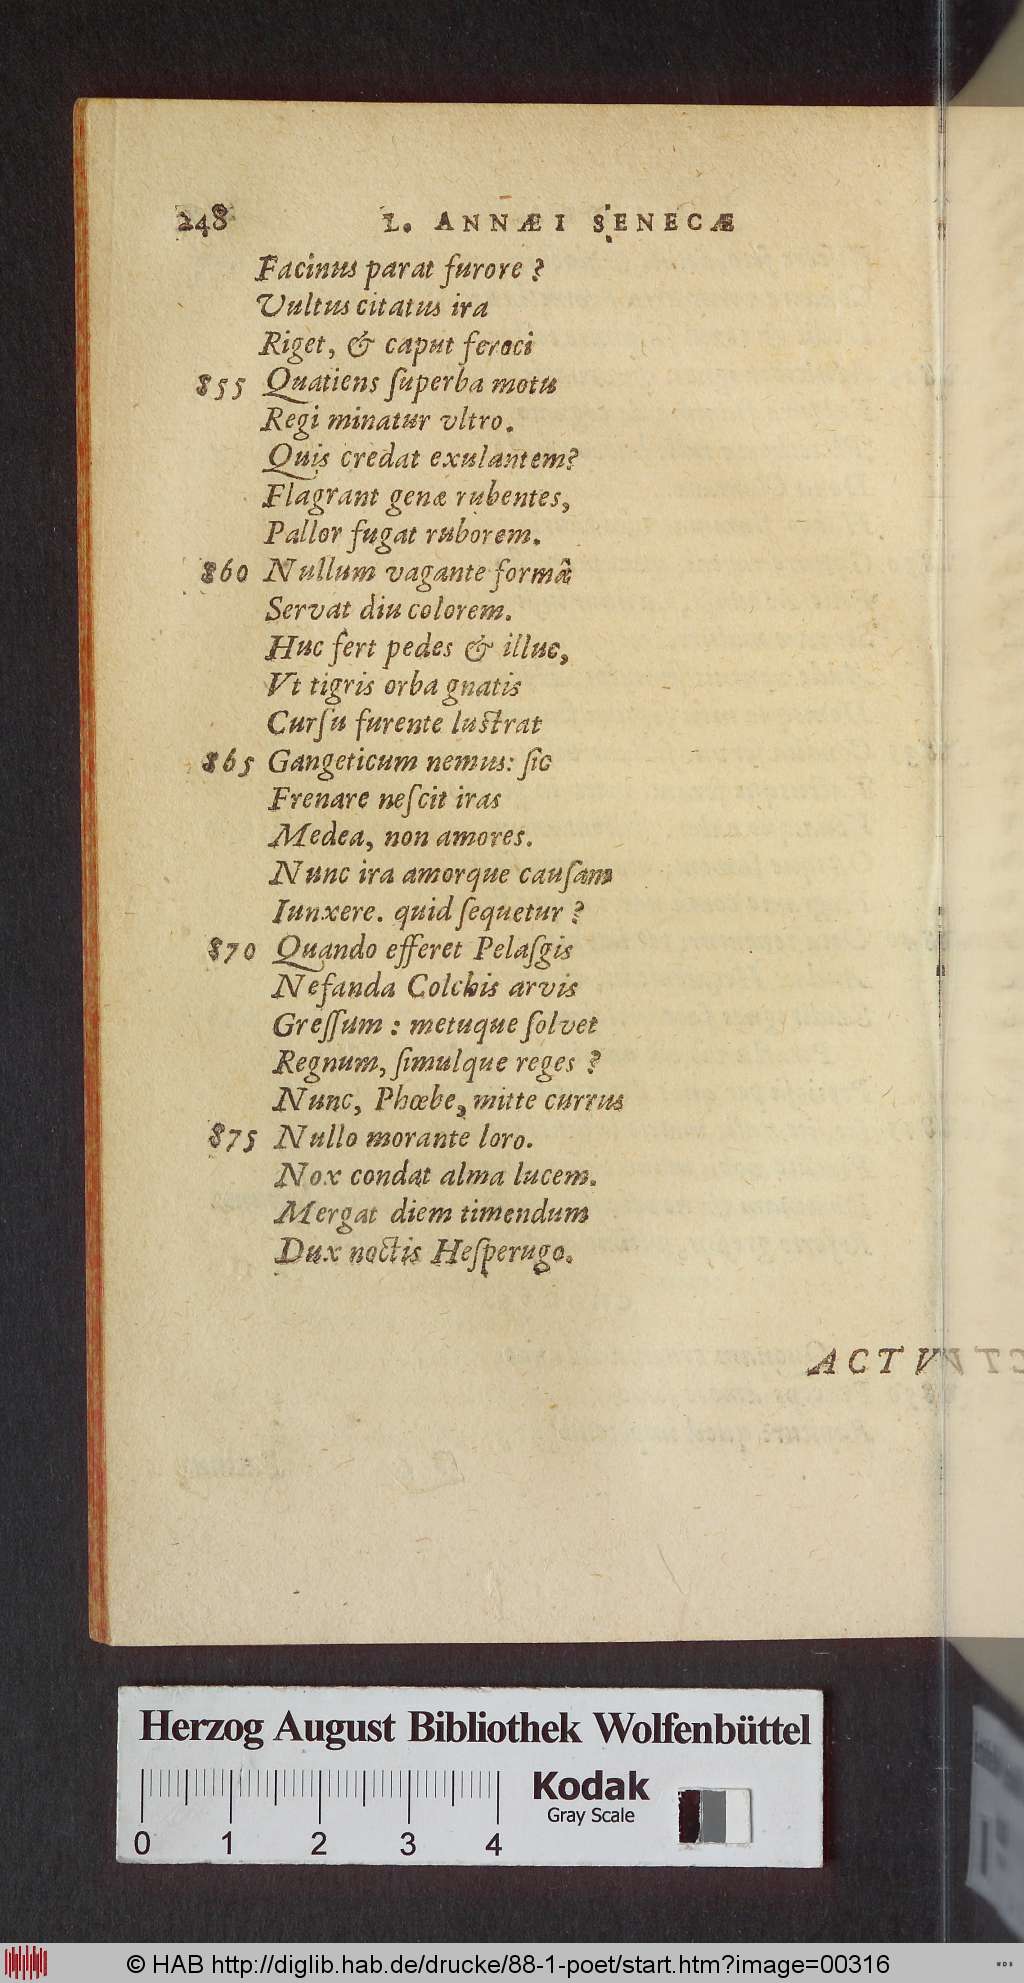 248 L. ANNÆI SENECÆ
Facinus parat furore?
Vultus citatus ira
Riget, & caput feroci
855 Quatiens ſuperba motu
Regi minatur vltro.
Quis credat exulantem?
Flagrant genæ rubentes,
Pallor fugat ruborem.
860 Nullum vagante formâ
Servat diu colorem.
Huc fert pedes & illuc,
Vt tigris orba gnatis
Curſu furente luſtrat
865 Gangeticum nemus: ſic
Frenare neſcit iras
Medea, non amores.
Nunc ira amorque cauſam
Iunxere. quid ſequetur?
870 Quando efferet Pelaſgis
Nefanda Colchis arvis
Greſſum: metuque ſolvet
Regnum, ſimulque reges?
Nunc, Phœbe, mitte currus
875 Nullo morante loro.
Nox condat alma lucem.
Mergat diem timendum
Dux noctis Heſperugo.
ACTV
Herzog August Bibliothek Wolfenbüttel
Kodak
Gray Scale
0 1 2 3 4
© HAB http://diglib.hab.de/drucke/88-1-poet/start.htm?image=00316